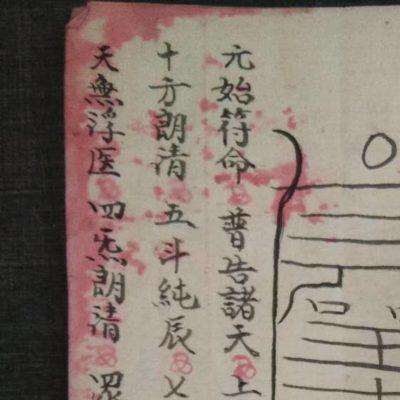 元始符命 普告諸天 上
十方朗清 五斗純辰
天無浮医 四炁朗清